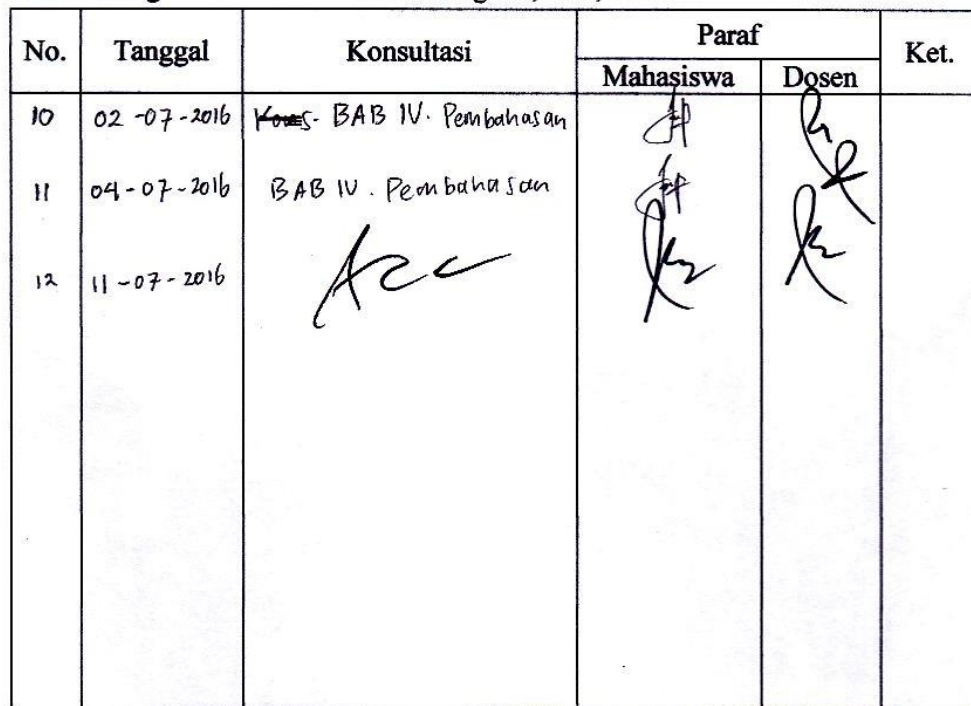 No. Tanggal Konsultasi Paraf Ket.
Mahasiswa Dosen
10 02-07-2016 BAB IV. Pembahasan
11 04-07-2016 BAB IV. Pembahasan
12 11-07-2016 Acc